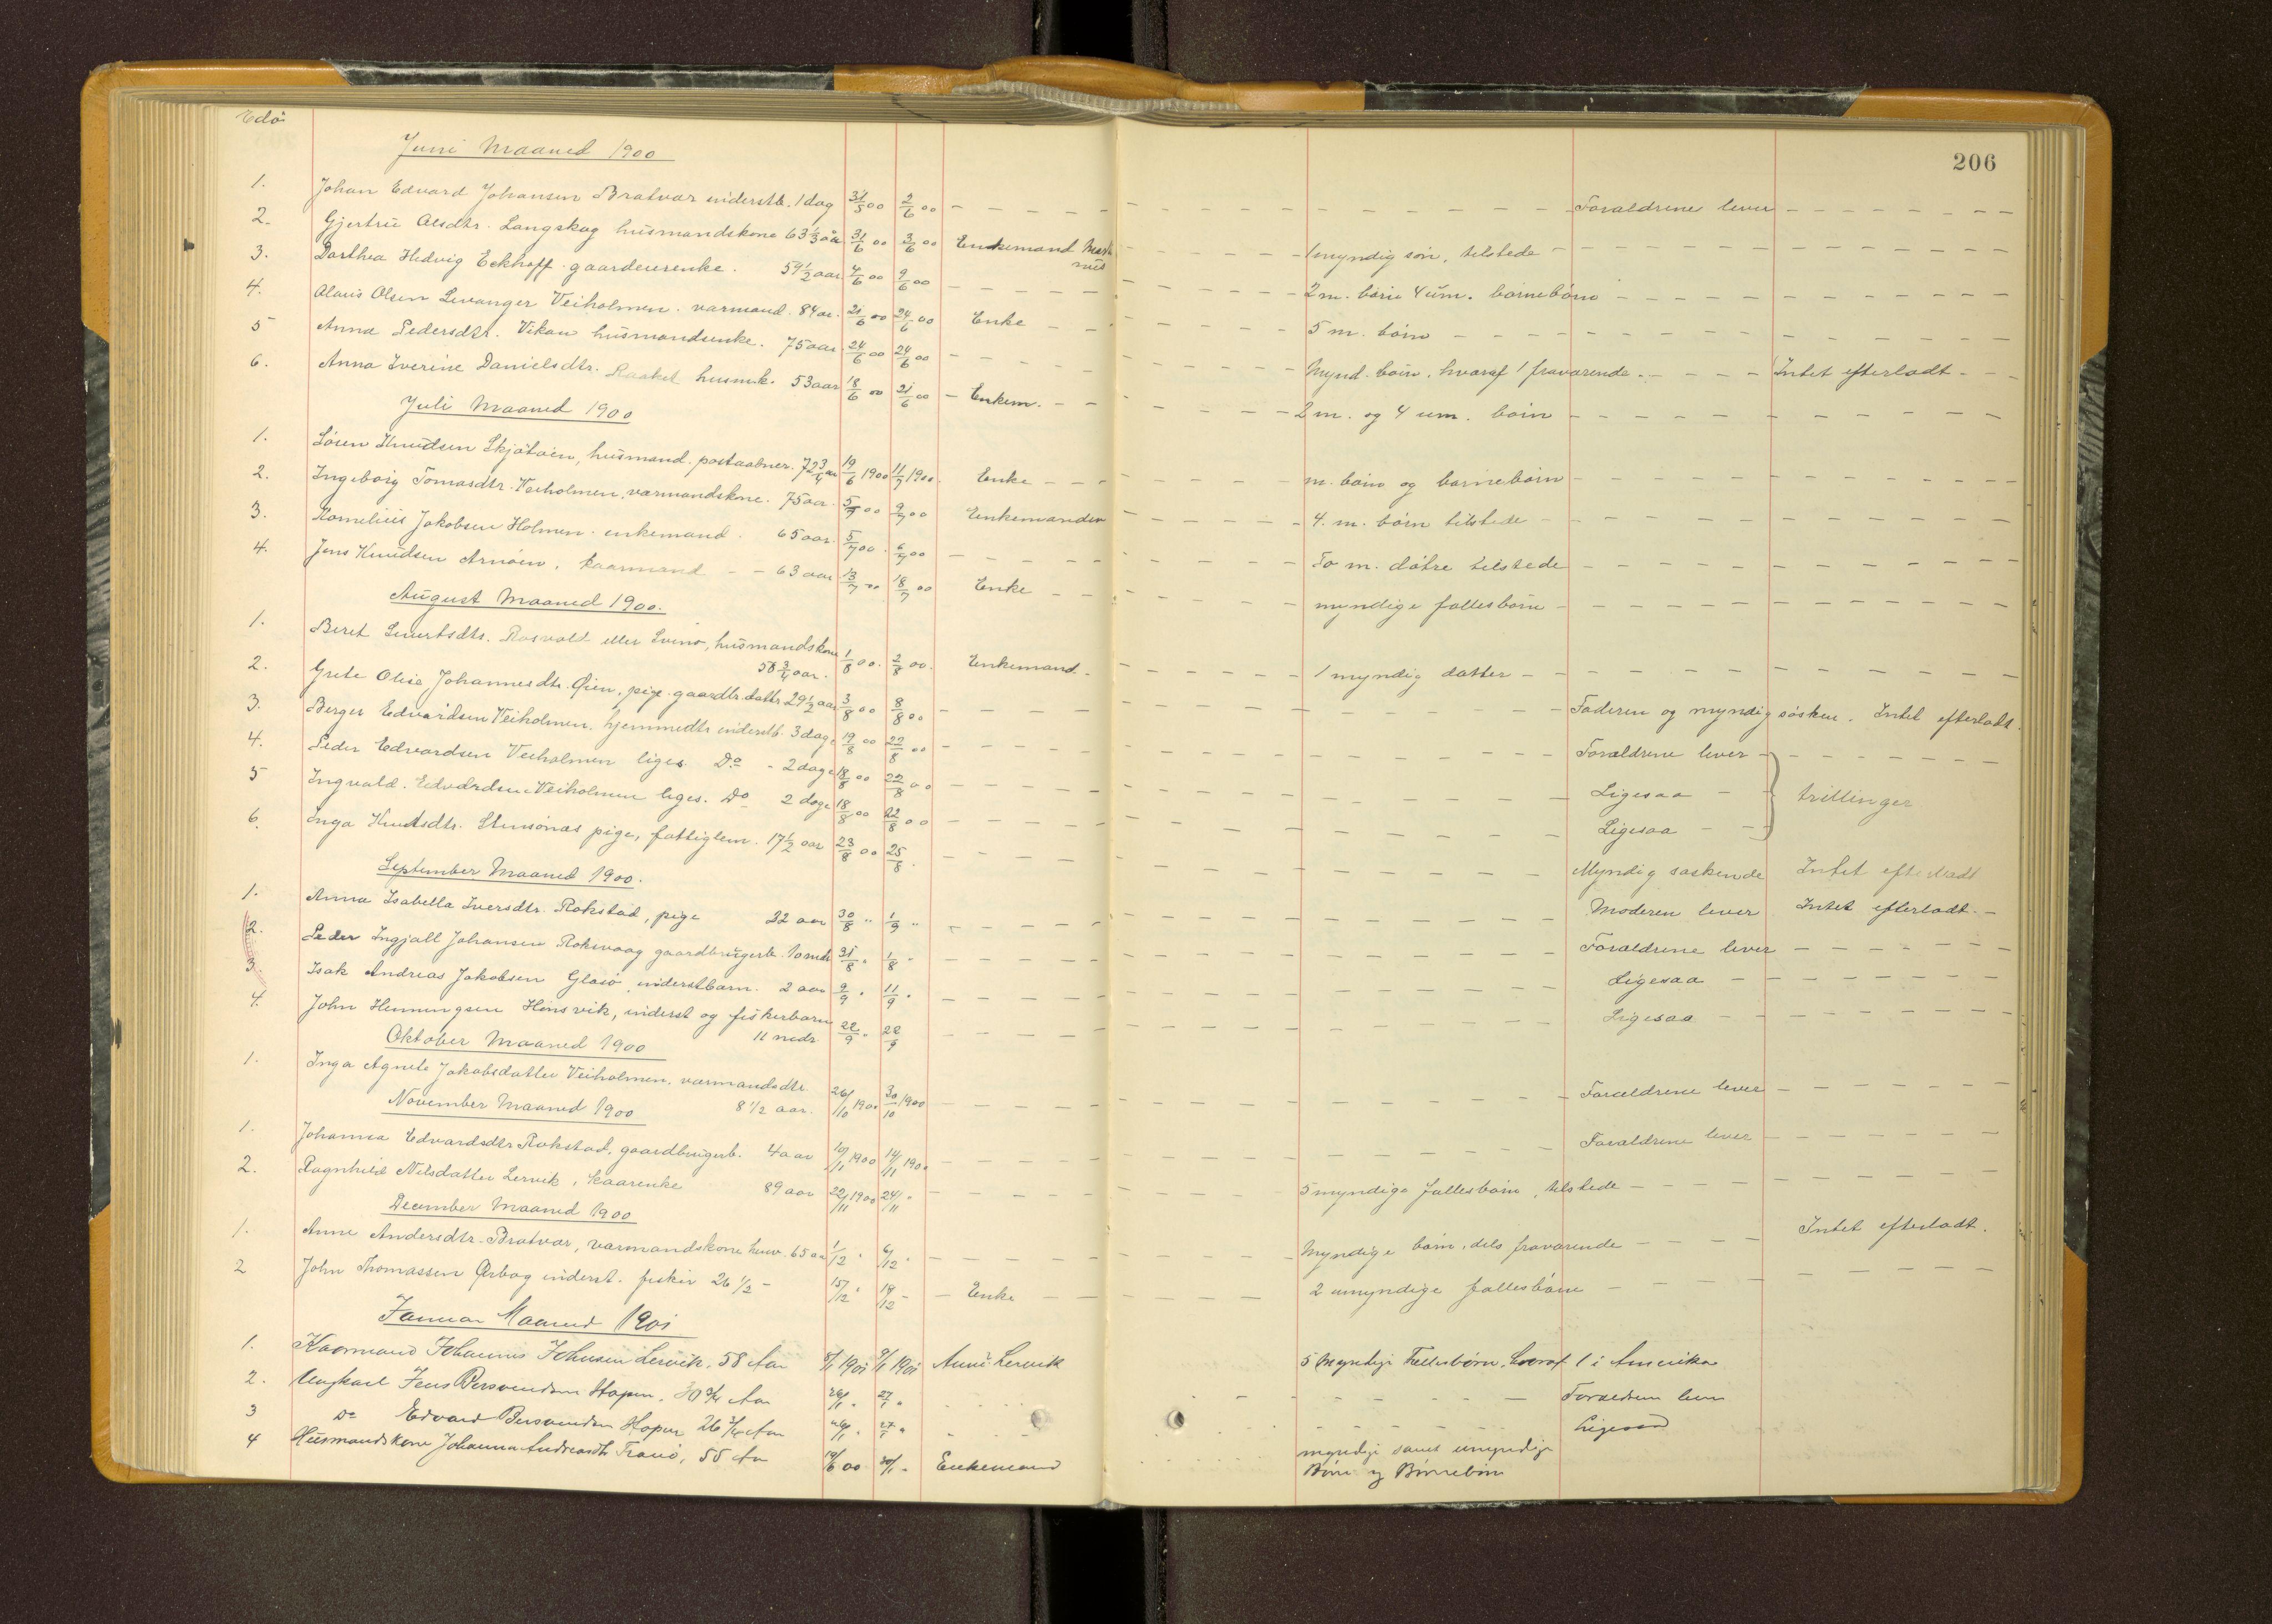 Edö
206
Juni Maaned 1900
1. Johan Edvard Johansen Bratvær inderstb. 1 dag 31/5 00 2/6 00 Forældrene lever
2. Gjertru Olsdtr. Langskog husmandskone 63 1/3 aar 31/6 00 3/6 00 Enkemand 1 myndig søn, tilstede
3. Dorthea Hedvig Eckhoff gaardeierenke. 59 1/2 aar 4/6 00 9/6 00 2 m. börn 4 um. börnebörn
4. Olaus Olsen Levanger Veiholmen. værmand. 84 aar. 21/6 00 24/6 00 Enke 5 m. börn
5 Anna Pedersdtr. Vikan husmandsenke. 75 aar 24/6 00 24/6 00 Mynd. börn, hvoraf 1 fraværende. Intet efterladt
6. Anna Iverine Danielsdtr. Raaket husmk. 53 aar 18/6 00 21/6 00 Enkem. 2 m. og 4 um. börn
Juli Maaned 1900
1. Sören Knudsen Skjötöien, husmand. postaabner. 72 3/4 aar 19/6 1900 11/7 1900 Enke m. börn og börnebörn
2. Ingeborg Tomasdtr. Veiholmen, værmandskone. 75 aar. 5/7 00 9/7 00 Enkemanden 4. m. börn tilstede
3. Kornelius Jakobsen Holmen. enkemand. 65 aar. 5/7 00. 6/7 00 To m. døtre tilstede
4. Jens Knudsen Arnöien, kaarmand 63 aar 13/7 00 18/7 00 Enke myndige fællesbörn
August Maaned 1900.
1. Beret Sivertsdtr. Rosvold eller Svinö, husmandskone
58 3/4 aar. 1/8 00. 2/8 00. Enkemand 1 myndig datter
2. Grete Olise Johannesdtr. Øien, pige. gaardbr.datter 29 1/2 aar 3/8 00 8/8 00 Faderen og myndig søsken. Intet efterladt.
3. Berger Edvardsen Veiholmen, hjemmedtr inderstb. 3 dage 19/8 00 22/8 00 Forældrene lever
4. Peder Edvardsen Veiholmen liges. Do 2 dage 18/8 00 22/8 00 Ligesaa trillinger
5 Ingvald. Edvardsen Veiholmen liges. Do 2 dage 18/8 00 22/8 00 Ligesaa
6. Inga Knutsdtr. Stensönæs pige, fattiglem. 17 1/2 aar 23/8 00 25/8. Myndig søskende Intet efterladt
September Maaned 1900.
1. Anna Isabella Iversdtr. Rokstad, pige 22 aar 30/8 " 1/9 " Moderen lever Intet efterladt.
2. Peder Ingjall Johansen Rokvaag gaardbrugerb. 10 mdr 31/8 " 1/8 " Forældrene lever
3. Isak Andreas Jakobsen Glasö inderstbarn. 2 aar 9/9 " 11/9 " Ligesaa
4. John Henningsen Hinsvik, inderst og fiskerbarn
11 mdr 22/9 " 22/9 Ligesaa
Oktober Maaned 1900
1. Inga Agnete Jakobsdatter Veiholmen. værmandsdtr.
8 1/2 aar. 26/10 1900 30/10 1900 Forældrene lever
November Maaned 1900
1. Johanna Edvardsdtr Rokstad, gaardbrugerb. 4 aar 10/11 1900 14/11 1900 Forældrene lever
2. Ragnhild Nilsdatter Lervik, kaarenke 89 aar 22/11 1900 24/11 " 5 myndige fællesbörn, tilstede
December Maaned 1900
1. Anne Andersdtr. Bratvær, værmandskone 65 aar 1/12 " 6/12 " Myndige börn, dels fraværende Intet efterladt.
2 John Thomassen Ørbog inderst. fisker 26 1/2 15/12 " 19/12 Enke 2 umyndige fællesbörn
Januar Maaned 1901
1. Kaarmand Johannes Johnsen Lervik, 58 Aar 8/1 1901 9/1 1901 Anne Lervik 5 Myndige Fællesbørn, hvoraf 1 i Amerika
2. Ungkarl Jens Hopen. 30 3/4 Aar 26/1 " 27/1 " Forældren lever
3 Do Edvard Hopen 26 Aar 26/1 " 27/1 " Ligesaa
4 Husmandskone Johanna Andreasdtr Tranö, 55 Aar 19/6 00 30/1 " Enkemand myndige samt umyndige
Börn og Börnebörn